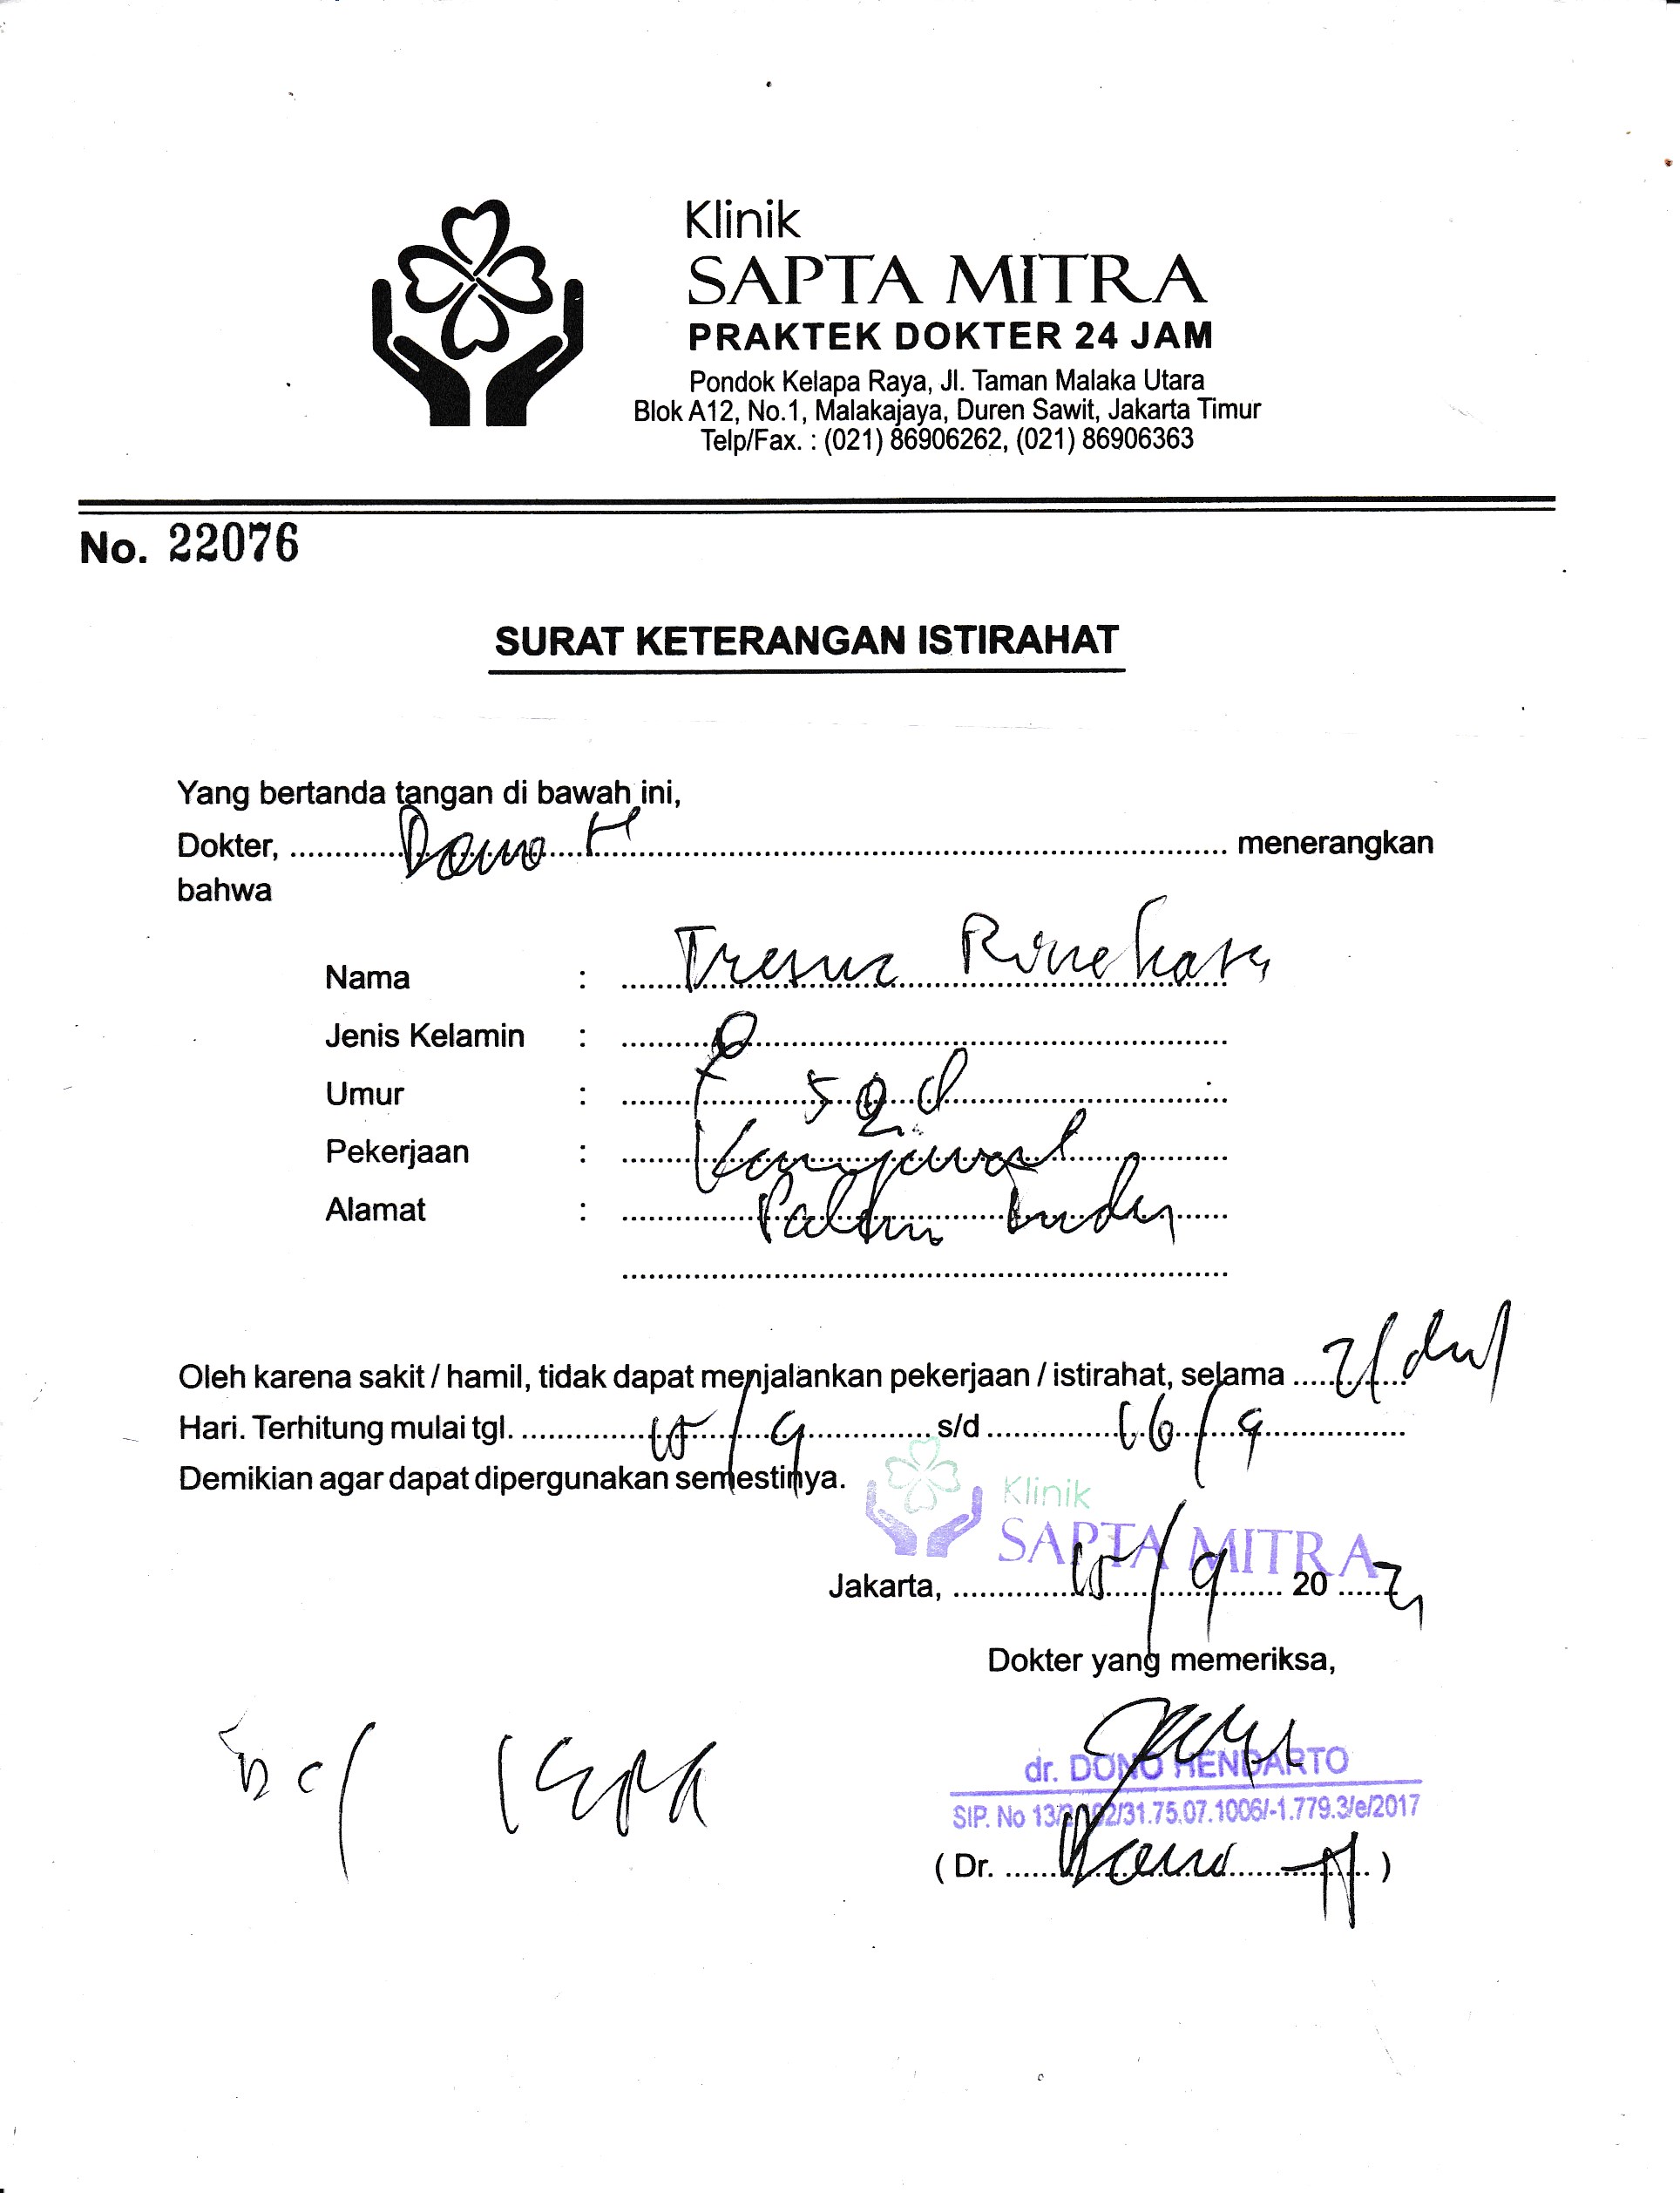 Klinik
SAPTA MITRA
PRAKTEK DOKTER 24 JAM
Pondok Kelapa Raya, Jl. Taman Malaka Utara
Blok A12, No.1, Malakajaya, Duren Sawit, Jakarta Timur
Telp/Fax. : (021) 86906262, (021) 86906363
No. 22076
SURAT KETERANGAN ISTIRAHAT
Yang bertanda tangan di bawah ini,
Dokter, Dono H menerangkan
bahwa
Nama :
Jenis Kelamin :
Umur :
Pekerjaan :
Alamat :
Oleh karena sakit / hamil, tidak dapat menjalankan pekerjaan / istirahat, selama 2 / dua /
Hari. Terhitung mulai tgl. 15 / 9 s/d 16 / 9
Demikian agar dapat dipergunakan semestinya.
Klinik
SAPTA MITRA
Jakarta, 15 / 9 20
Dokter yang memeriksa,
dr. DONO HENDARTO
SIP. No /31.75.07.1006/-1.779.3/e/2017
( Dr. Dono H )